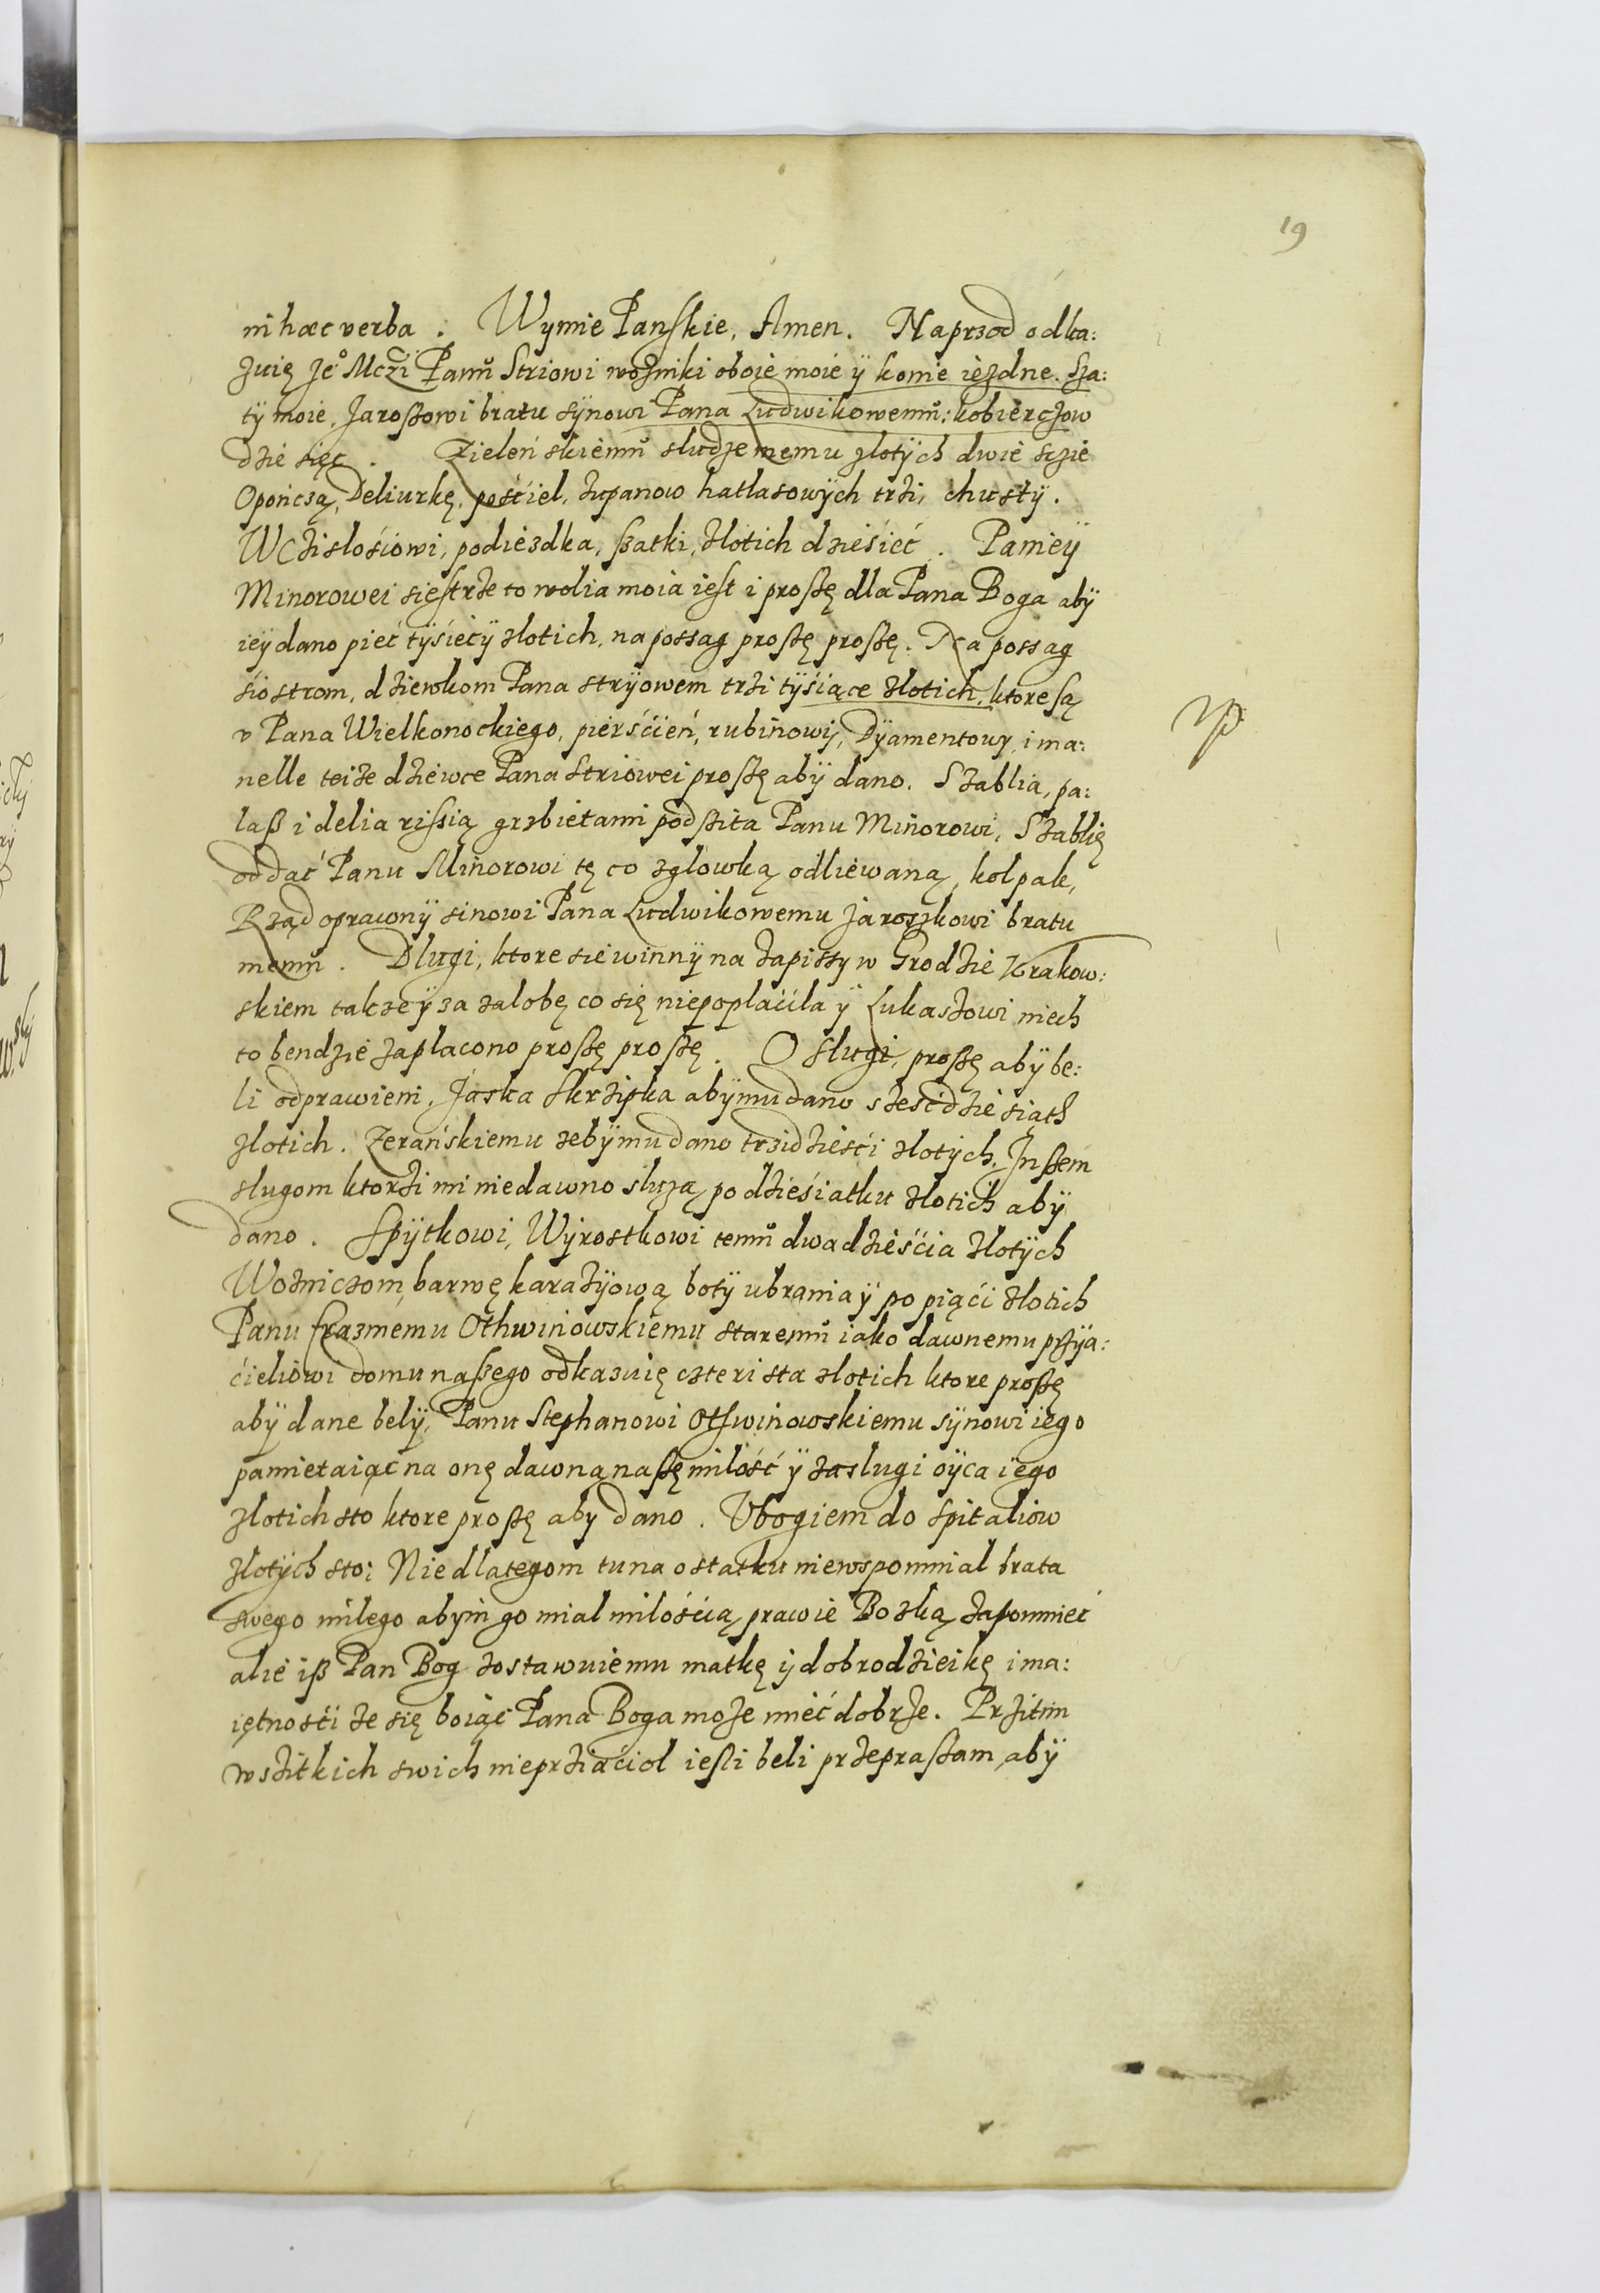 19
in hæc verba. W ymie Panskie, Amen. Naprzod odka:
zuię Je° Mczi Panu Striowi wozniki oboie moie ÿ konie iezdne. Sza:
tÿ moie, Jaroszowi bratu sÿnowi Pana Ludwikowemu: kobierczow
dziesięc. Zielenskiemu sludze memu zlotÿch dwie scie
Oponczą, Deliurkę, posciel, zupanow hatlasowÿch trzi, chustÿ.
Wczislosiowi, podiezdka, szatki, zlotich dziesieć. Paniey
Minorowei siestrze to wolia moia iest i proszę dla Pana Boga abÿ
iey dano pieć tÿsiecÿ zlotich, na possag proszę proszę. Na possag
siostrom, dziewkom Pana strÿowem trzi tÿsiące zlotich, ktore są
v Pana Wielkonockiego, pierścień, rubinowÿ, Dÿamentowy, i ma:
nelle teize dziewce Pana Striowei proszę abÿ dano. Szablia, pa:
lasz i delia rissią grzbietami podszita Panu Minorowi, Szablię
oddać Panu Minorowi tę co zglowką odliewaną, kolpak,
Rząd oprawnÿ sinowi Pana Ludwikowemu Jaroszkowi bratu
memu. Dlugi, ktore sie winnÿ na zapissy w Grodzie Krakow:
skiem takze ÿ za zalobę co się niepoplacila ÿ Lukaszowi niech
to bendzie zaplacono proszę proszę. O slugi, proszę abÿ be:
li odprawieni, Jaska Skrzipka abÿ mu dano szescdziesiąth
zlotich. Zeranskiemu zebÿ mu dano trzidziesci zlotÿch. Inszem
slugom ktorzi mi niedawno sluzą po dziesiatku zlotich abÿ
dano. Spÿtkowi, Wÿrostkowi temu dwadzieścia zlotÿch
Wozniczom, barwę karazÿową botÿ ubrania ÿ po piąci zlotich
Panu Erazmemu Othwinowskiemu staremu iako dawnemu przÿa:
cieliowi domu naszego odkazuię czterista zlotich ktore proszę
abÿ dane belÿ, Panu Stephanowi Othwinowskiemu sÿnowi iego
pamietaiąc na onę dawną naszę milość ÿ zaslugi oÿca iego
zlotich sto ktore proszę aby dano. Vbogiem do spitaliow
zlotÿch sto; Nie dlategom tu na ostatku niewspomnial brata
swego milego abym go mial miloscią prawie Boską zapomniec
alie isz Pan Bog zostawuie mu matkę ÿ dobrodzieikę i ma:
iętnosci ze się boiąc Pana Boga moze mieć dobrze. Przitim
wszitkich swich nieprziaciol iesli beli przepraszam, abÿ